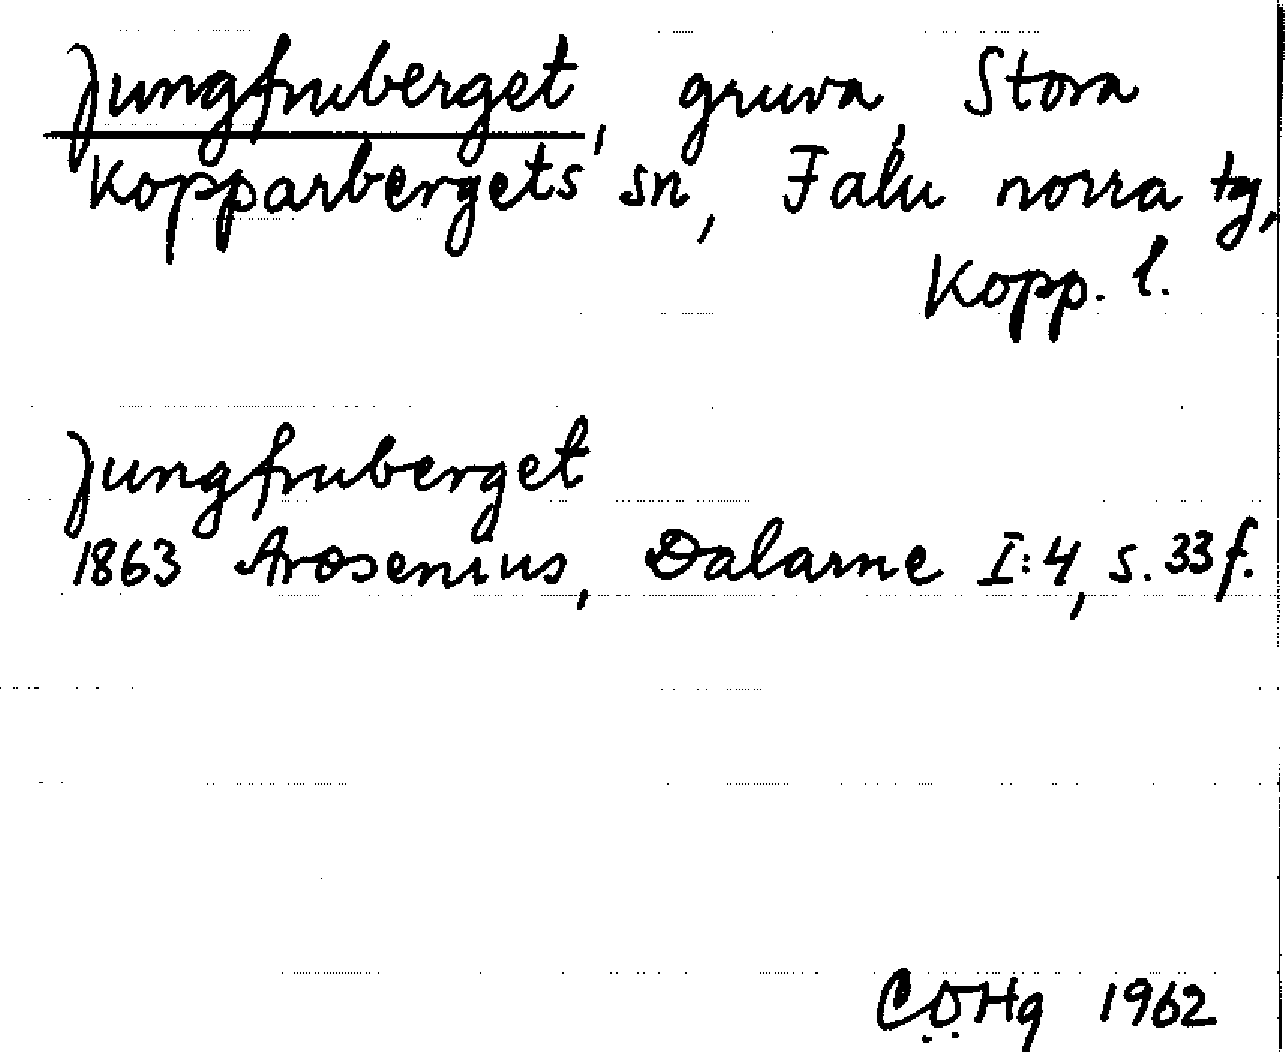 Jungfruberget, gruva, Stora
Kopparbergets sn, Falu norra tg,
Kopp. l.
Jungfruberget
1863 Arosenius, Dalarne I:4, s. 33 f.
C.O.Hg 1962